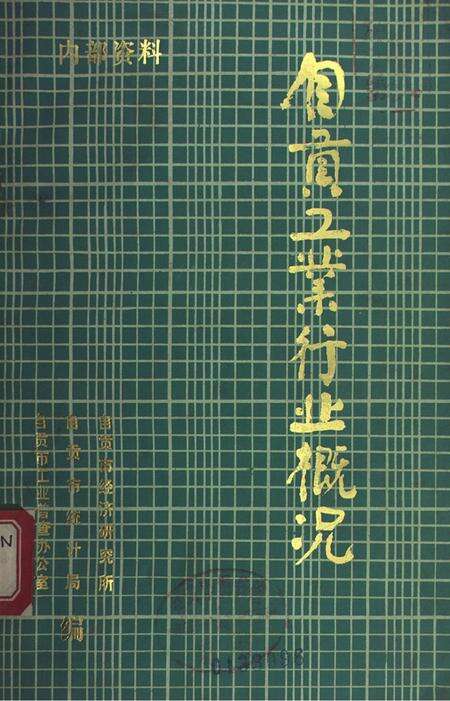 内部资料
自贡工业行业概况
自贡市经济研究所
自贡市统计局
自贡市工业普查办公室
编
N